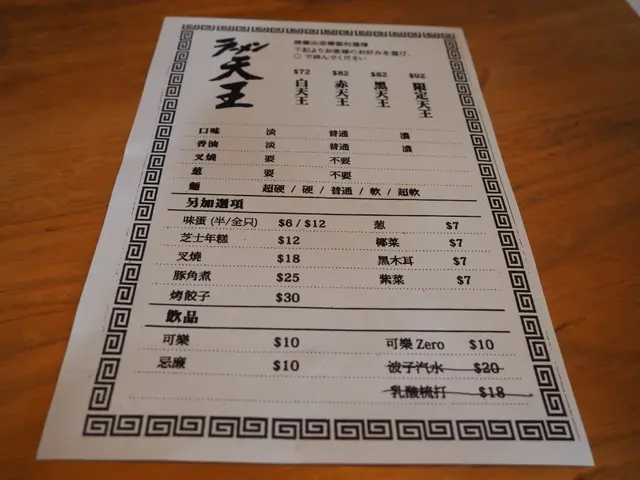 ラーメン天王
請圈出您需要的選擇
下記よりお客様のお好みを選び、
○で囲んでください
$72 $82 $82 $92
白天王 赤天王 黑天王 限定天王
口味 淡 普通 濃
香油 淡 普通 濃
叉燒 要 不要
葱 要 不要
麵 超硬 / 硬 / 普通 / 軟 / 超軟
另加選項
味蛋 (半/全只) $6 / $12 葱 $7
芝士年糕 $12 椰菜 $7
叉燒 $18 黑木耳 $7
豚角煮 $25 紫菜 $7
烤餃子 $30
飲品
可樂 $10 可樂 Zero $10
忌廉 $10 波子汽水 $20
乳酸梳打 $18